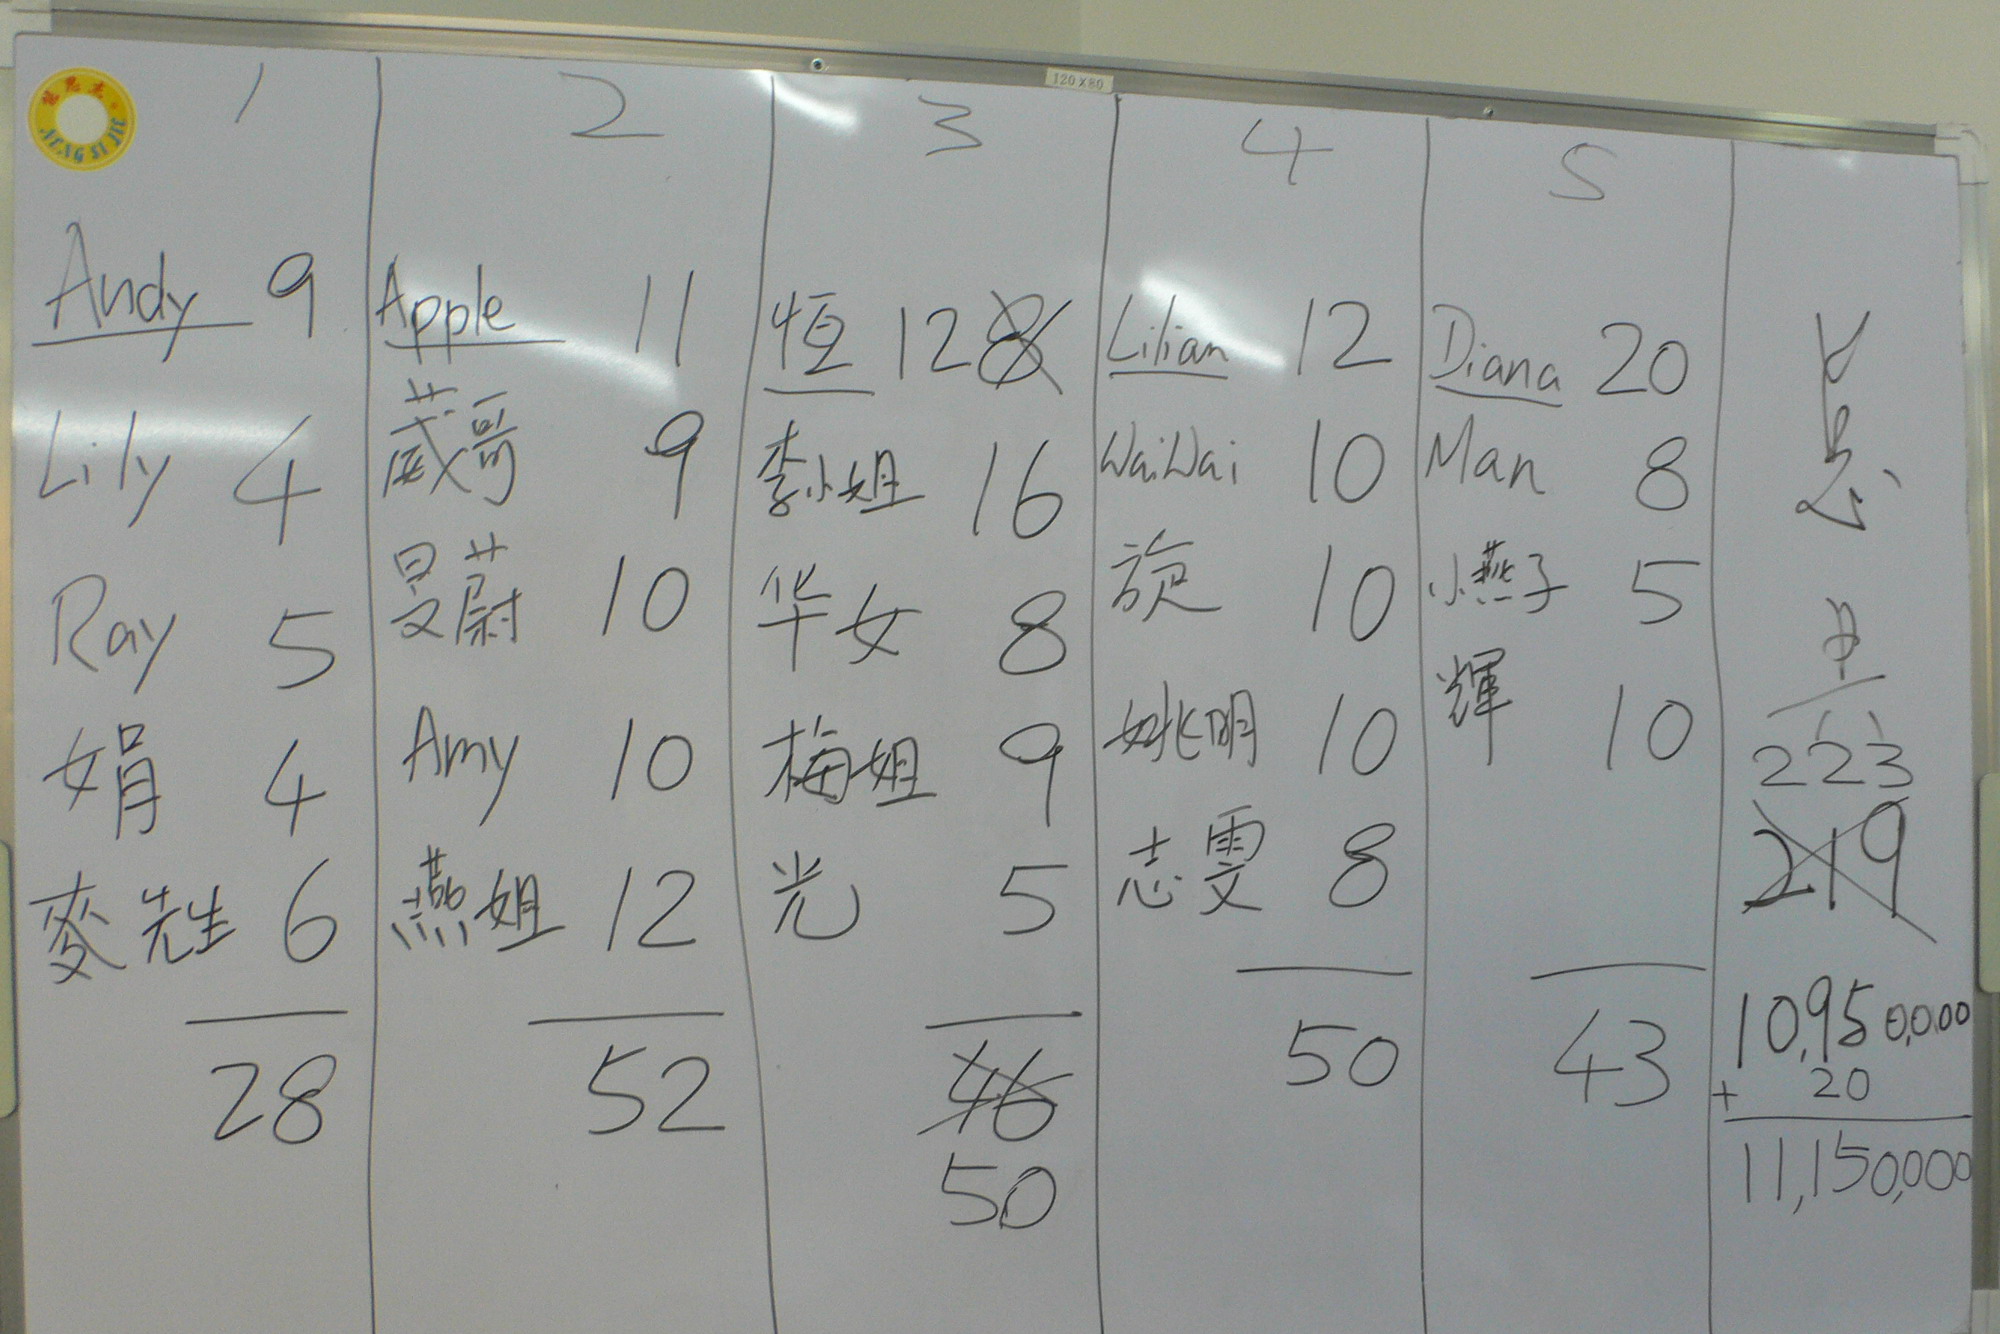 能思杰
NENG SI JIE
120X80
1
Andy 9
Lily 4
Ray 5
娟 4
麥先生 6
28
2
Apple 11
葳哥 9
旻蔚 10
Amy 10
燕姐 12
52
3
恒 12 8
李小姐 16
华女 8
梅姐 9
光 5
46
50
4
Lilian 12
WaiWai 10
旋 10
姚明 10
志雯 8
50
5
Diana 20
Man 8
小燕子 5
輝 10
43
223
219
10,950,000
+ 20
11,150,000